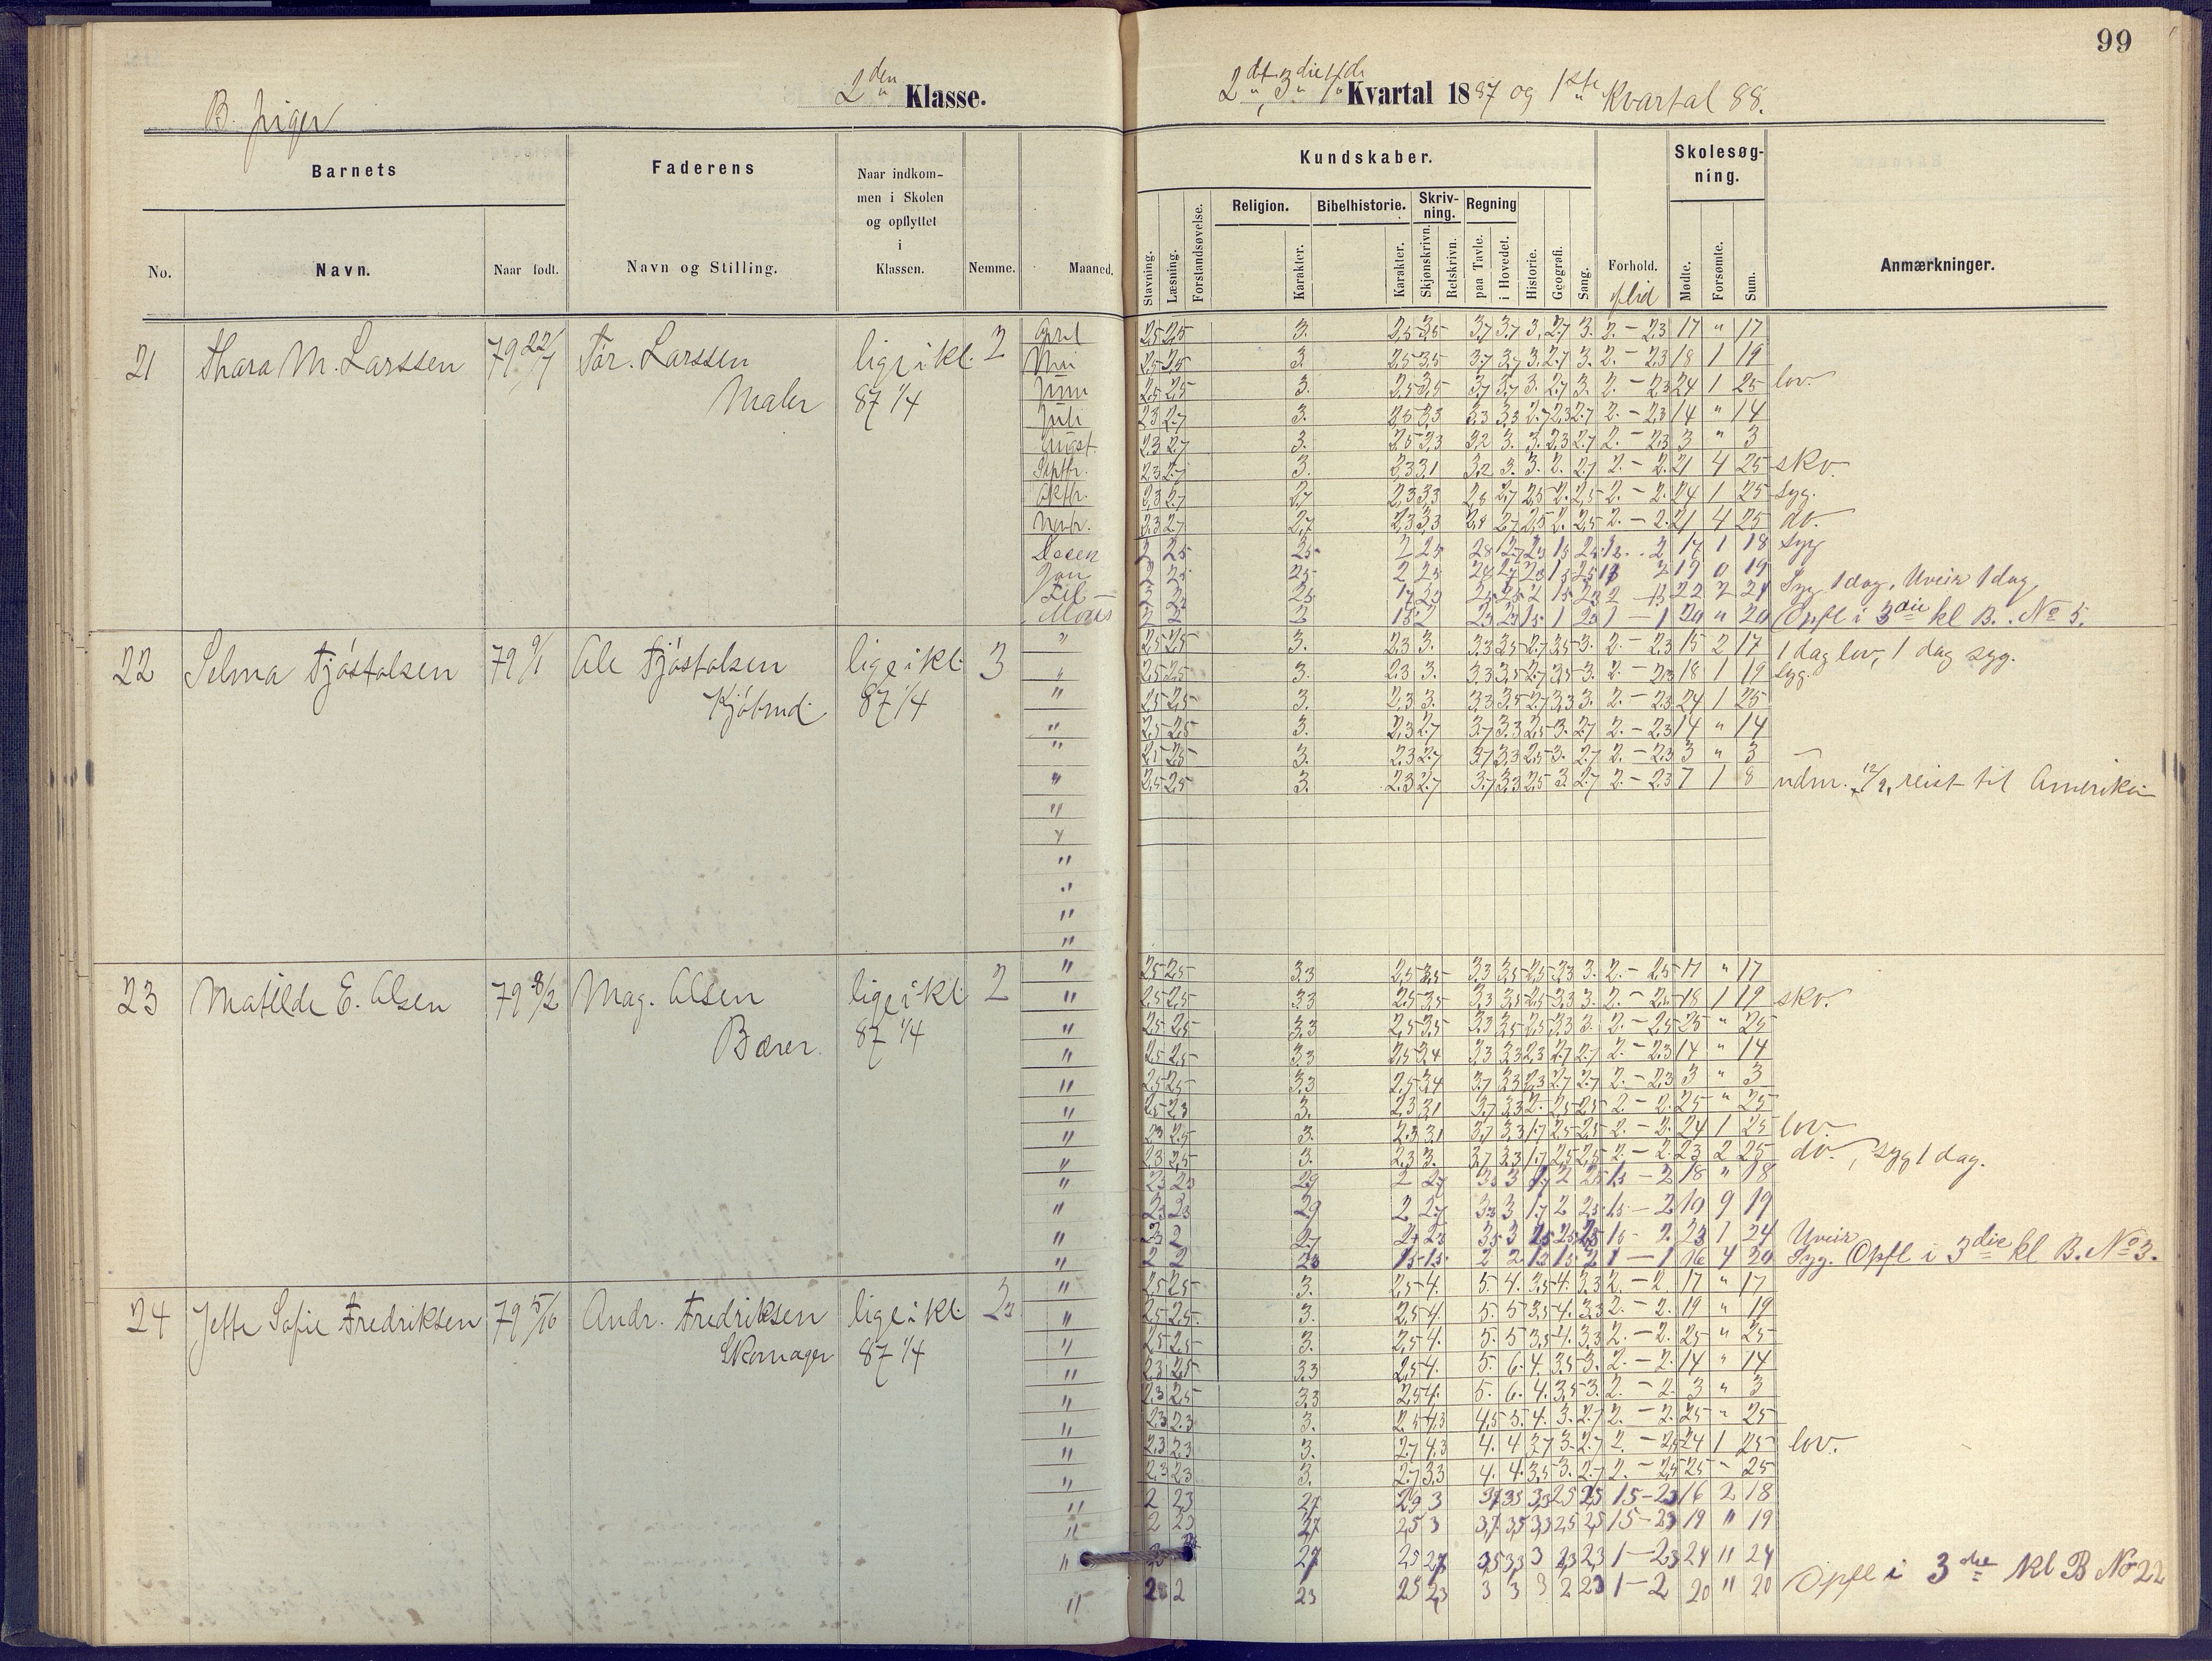 99
2den Klasse.
2det, 3die 4de Kvartal 1887 og 1ste Kvartal 88.
B. piger
Barnets
Faderens
Naar indkom-
men i Skolen
og opflyttet
i
Klassen.
Kundskaber.
Skolesøg-
ning.
Religion.
Bibelhistorie.
Skriv-
ning.
Regning
No.
Navn.
Naar født.
Navn og Stilling.
Nemme.
Maaned.
Stavning.
Læsning.
Forstandsøvelse.
Karakter.
Karakter.
Skjønskrivn.
Retskrivn.
paa Tavle.
i Hovedet.
Historie.
Geografi.
Sang.
Forhold.
flid
Mødte.
Forsømte.
Sum.
Anmærkninger.
21 Thara M. Larssen 79 22/7 Tår. Larssen lige i kl. 2
Maler 87 1/4
April 2,5 2,5 3. 2,5 3,5 3,7 3,7 3. 2,7 3. 2. - 2,3 17 " 17
Mai 2,5 2,5 3. 2,5 3,5 3,7 3,7 3. 2,7 3. 2. - 2,3 18 1 19
Juni 2,5 2,5 3. 2,5 3,5 3,7 3,7 3. 2,7 3. 2. - 2,3 24 1 25 lov.
Juli 2,3 2,7 3. 2,5 3,3 3,3 3,3 2,7 2,3 2,7 2. - 2,3 14 " 14
Augst. 2,3 2,7 3. 2,5 3,3 3,2 3. 3. 2,3 2,7 2. - 2,3 3 " 3
Septbr. 2,3 2,7 3. 2,3 3,1 3,2 3. 3. 2. 2,7 2. - 2. 21 4 25 skv.
Oktbr. 2,3 2,7 2,7 2,3 3,3 2,8 2,7 2,5 2. 2,5 2. - 2. 24 1 25 Syg.
Novbr. 2,3 2,7 2,7 2,3 3,3 2,8 2,7 2,5 2. 2,5 2. - 2. 21 4 25 do.
Decen 17 1 18 Syg
Jan 19 0 19
Feb 22 2 24 Syg 1 dag, Uveir 1 dag
Mars 2 2 20 " 20 Opfl i 3die kl B. No 5.
22 Selma Tjóstolsen 79 9/1 Ole Tjóstolsen lige i kl. 3
Kjöbmd. 87 1/4
" 2,5 2,5 3. 2,3 3. 3,3 3,5 2,7 3,5 3. 2. - 2,3 15 2 17 1 dag lov, 1 dag syg.
" 2,5 2,5 3. 2,3 3. 3,3 3,5 2,7 3,5 3. 2. - 2,3 18 1 19 Syg.
" 2,5 2,5 3. 2,3 3. 3,3 3,5 2,7 3,3 3. 2. - 2,3 24 1 25
" 2,5 2,5 3. 2,3 2,7 3,7 3,3 2,5 3. 2,7 2. - 2,3 14 " 14
" 2,5 2,5 3. 2,3 2,7 3,7 3,3 2,5 3. 2,7 2. - 2,3 3 " 3
" 2,5 2,5 3. 2,3 2,7 3,7 3,3 2,5 3. 2,7 2. - 2,3 7 1 8 udm. 12/9, reist til Amerika
"
"
"
"
"
"
23 Matilde E. Olsen 79 8/2 Mag. Olsen lige i kl. 2
Bærer. 87 1/4
" 2,5 2,5 3,3 2,5 3,5 3,3 3,5 2,5 3,3 3. 2. - 2,5 17 " 17
" 2,5 2,5 3,3 2,5 3,5 3,3 3,5 2,5 3,3 3. 2. - 2,5 18 1 19 skv.
" 2,5 2,5 3,3 2,5 3,5 3,3 3,5 2,5 3,3 3. 2. - 2,5 25 " 25
" 2,5 2,5 3,3 2,5 3,4 3,3 3,3 2,3 2,7 2,7 2. - 2,3 14 " 14
" 2,5 2,5 3,3 2,5 3,4 3,7 3,3 2,3 2,7 2,7 2. - 2,3 3 " 3
" 2,5 2,3 3. 2,3 3,1 3,7 3,3 2. 2,5 2,5 2. - 2. 25 " 25
" 2,3 2,5 3. 2,3 3,1 3,7 3,3 1,7 2,5 2,5 2. - 2. 24 1 25 lov.
" 2,3 2,5 3. 2,3 3. 3,7 3,3 1,7 2,5 2,5 2. - 2. 23 2 25 do., syg 1 dag.
" 23 23 29 2 27 18 " 18
" 23 23 29 2 27 33 3 17 2 25 15 - 2 10 9 19
" 23 2 27 23 1 24 Uveir
" 2 2 23 16 4 20 Syg. Opfl i 3die kl B. No 3.
24 Jette Sofie Fredriksen 79 5/10 Andr. Fredriksen lige i kl.
Skomager 87 1/4
" 2,5 2,5 3. 2,5 4. 5. 4. 3,5 4. 3,3 2. - 2. 17 " 17
" 2,5 2,5 3. 2,5 4. 5. 5 3,5 4. 3,3 2. - 2. 19 " 19
" 2,5 2,5 3. 2,5 4. 5. 5 3,5 4. 3,3 2. - 2. 25 " 25
" 2,3 2,5 3,3 2,5 4. 5. 6. 4. 3,5 3. 2. - 2. 14 " 14
" 2,3 2,5 3,3 2,5 4. 5. 6. 4. 3,5 3. 2. - 2. 3 " 3
" 2,3 2,3 3. 2,5 4,3 4,5 5. 4. 3. 2,7 2. - 2. 25 " 25
" 2,3 2,3 3. 2,7 4,3 4. 4 3,7 3. 2,7 2. - 2,5 24 1 25 lov.
" 2,3 2,3 3. 2,7 3,3 4. 4. 3,5 3. 2,7 2. - 2,5 25 - 25
" 2 23 27 29 3 37 35 33 25 25 15 - 23 16 2 18
" 2 23 27 25 3 37 35 33 25 25 15 - 23 19 " 19
" 27 25 27 35 33 3 23 23 1 - 23 24 " 24
" 2 23 25 23 3 3 3 2 23 1 - 2 20 " 20 Opfl i 3die kl B No 22